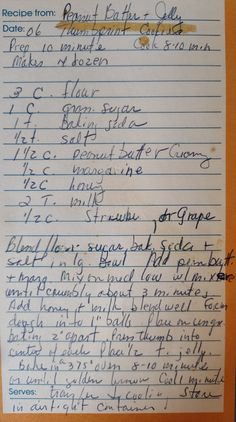 Recipe from: Peanut Butter + Jelly
Date: 06 Thumbprint Cookies
Prep 10 minute Cook 8-10 min
Makes 4 dozen
3 C. flour
1 C. gran. sugar
1 t. Baking soda
1/2 t. salt
1 1/2 c. peanut butter Creamy
1/2 c margarine
1/2 C honey
2 T. milk
1/2 c. Strawbe or Grape
Blend flour, sugar, bak. Soda +
Salt in lg. bowl Add penutbutt.
+ marg. Mix on med low w/ mixer
until crumbly about 3 minutes
Add honey + milk blend well form
dough in to 1" balls Place on ungre
baking 2" apart Press thumb into
center of each Place 1/2 t. jelly.
bake in 375° oven 8-10 minutes
or until golden brown Cool 1 minute
Serves: transfer to cooling Store
in airtight container!